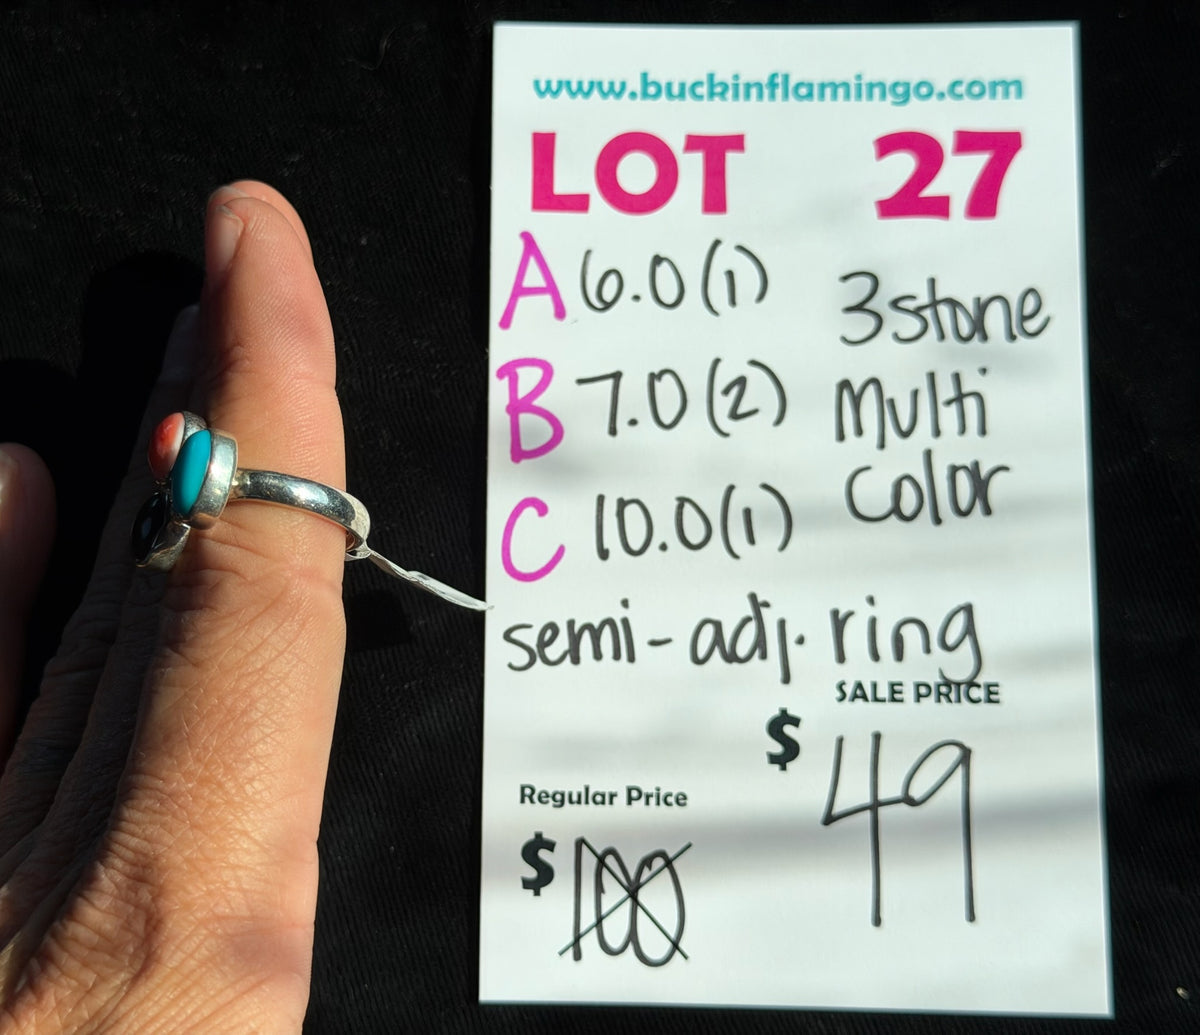 www.buckinflamingo.com
LOT 27
A 6.0 (1)
B 7.0 (2)
C 10.0 (1)
3 stone
Multi
Color
semi-adj. ring
SALE PRICE
$ 49
Regular Price
$ 100